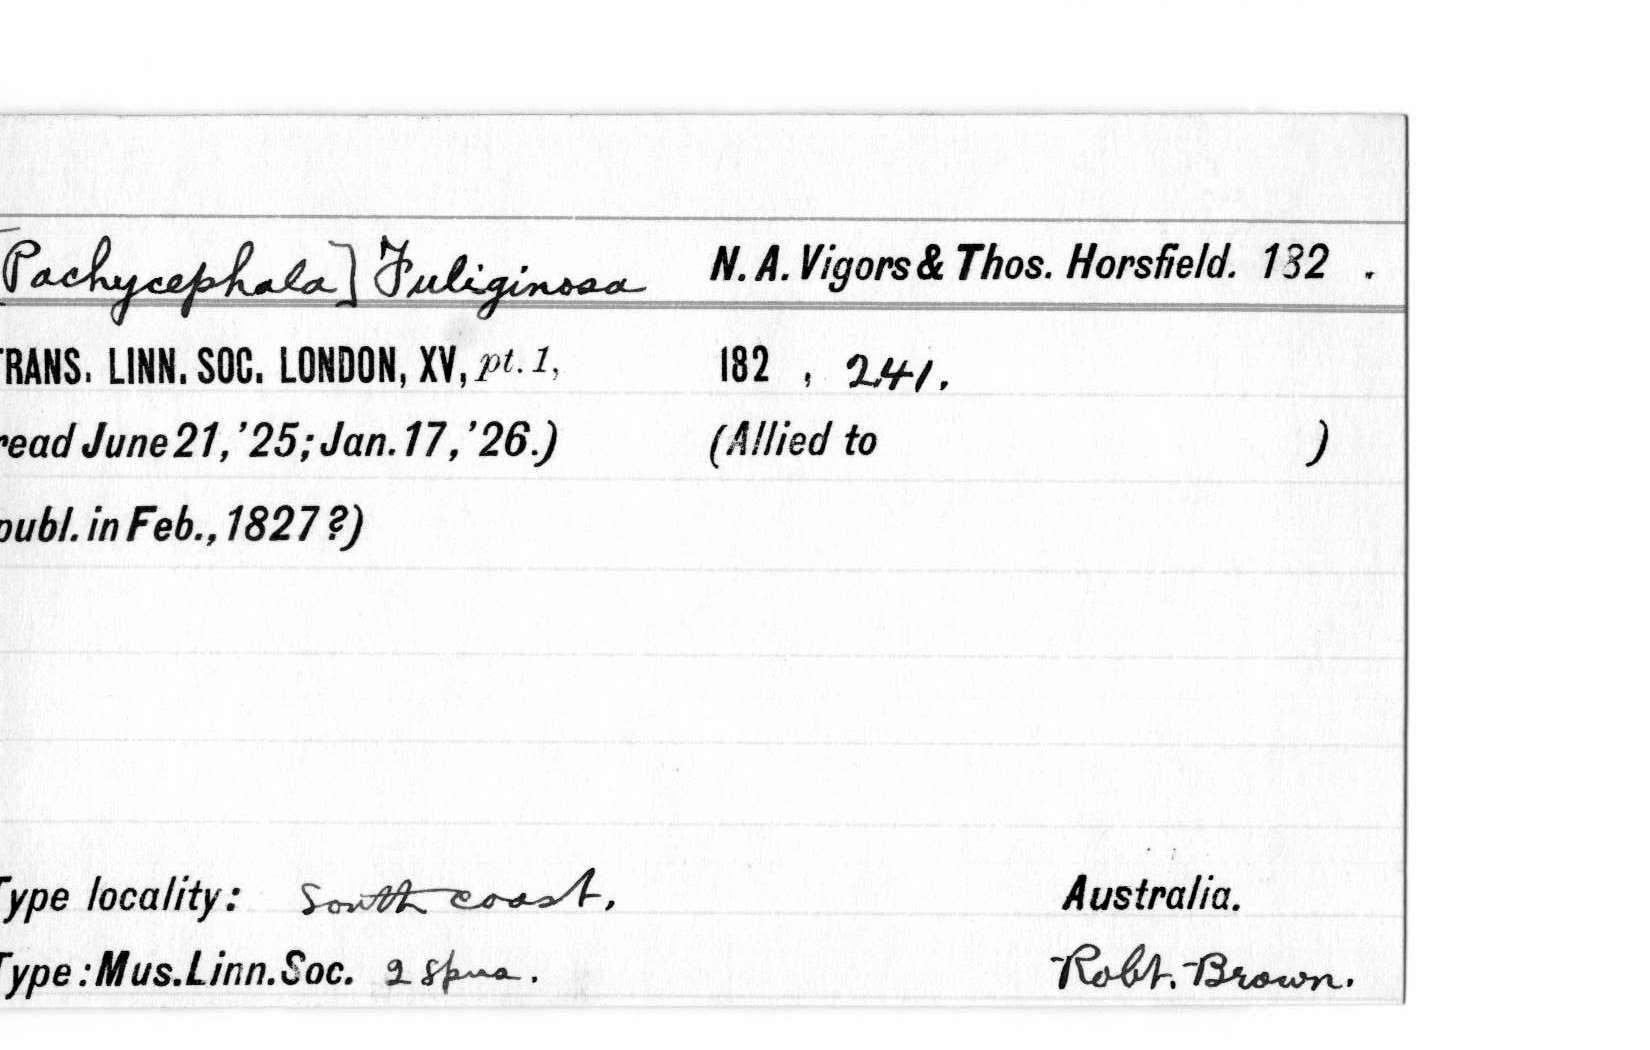 [Pachycephala] Fuliginosa N. A. Vigors & Thos. Horsfield. 182 .
TRANS. LINN. SOC. LONDON, XV, pt. 1, 182 , 241.
read June 21, '25; Jan. 17, '26.) (Allied to )
publ. in Feb., 1827 ?)
Type locality: South coast, Australia.
Type: Mus. Linn. Soc. 2 spns. Robt. Brown.